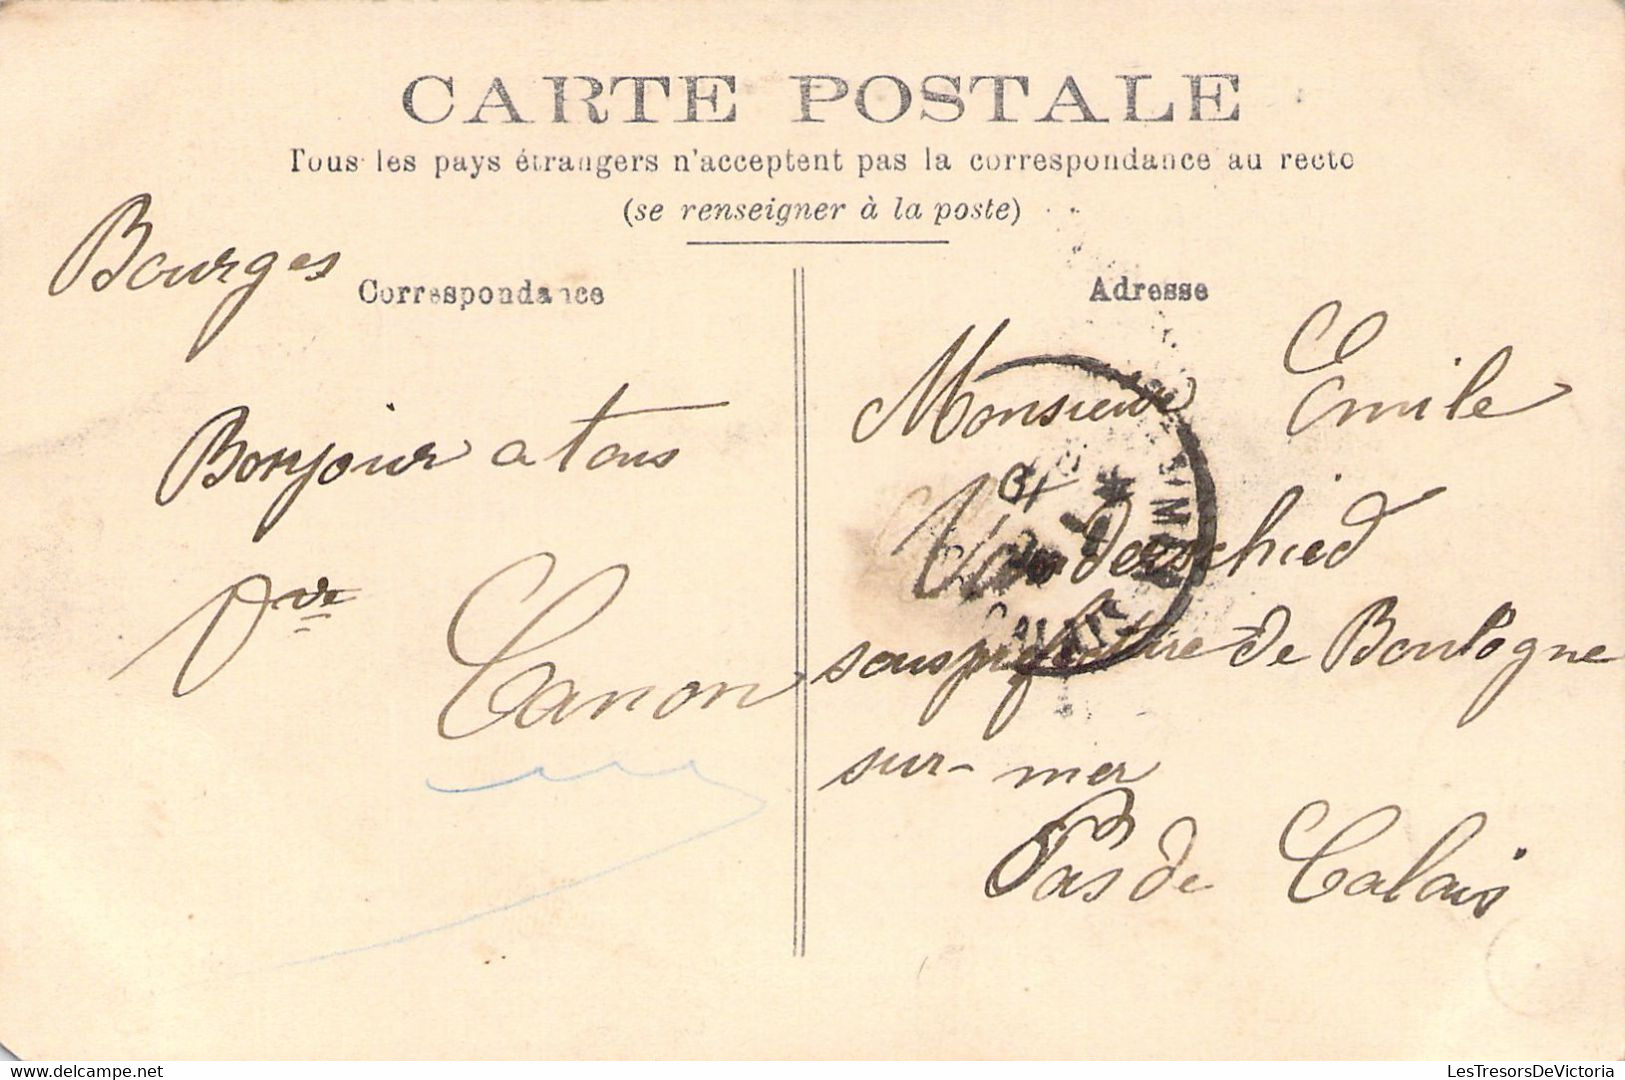 CARTE POSTALE
Tous les pays étrangers n'acceptent pas la correspondance au recto
(se renseigner à la poste)
Correspondance
Adresse
Bourges
Bonjour a tous
Vve Canon
Monsieur Emile
Vanderschied
souspréfecture de Boulogne
sur-mer
Pas de Calais
LesTresorsDeVictoria